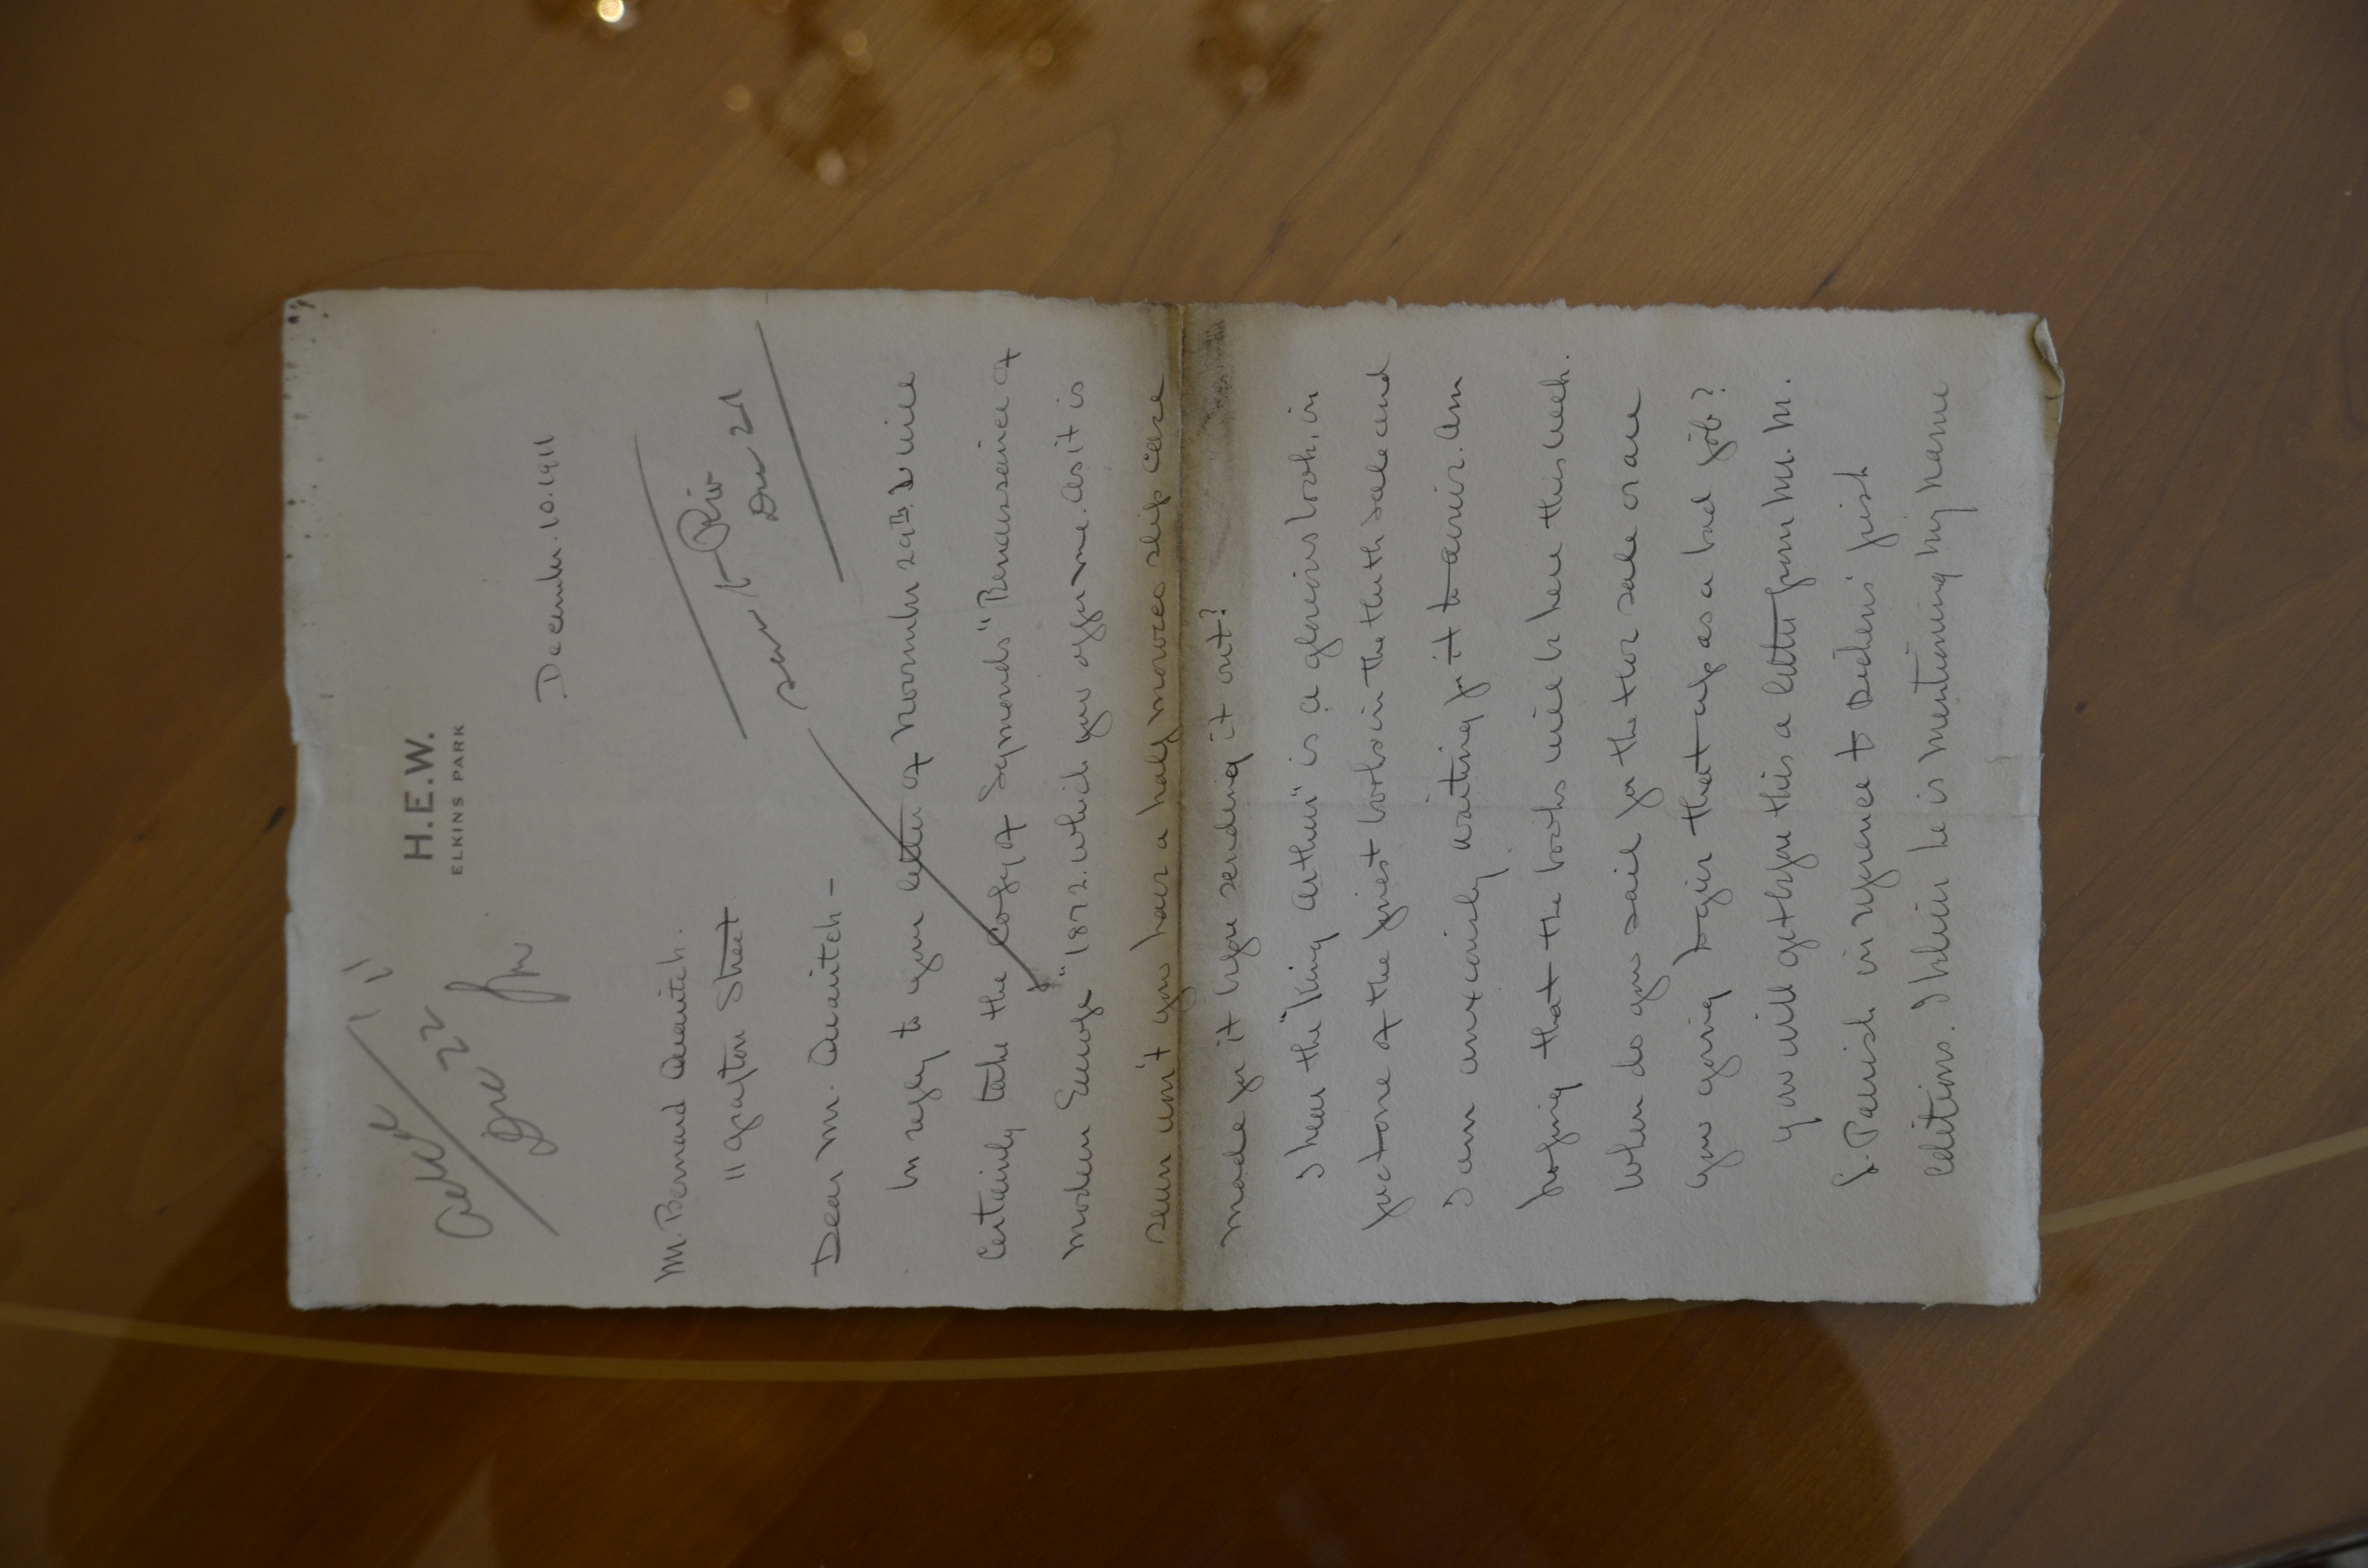 H.E.W.
ELKINS PARK
Dec 22
December. 10. 1911
Mr. Bernard Quaritch.
11 Grafton Street
sent to Riv
Dec 21
Dear Mr. Quaritch –
In reply to your letter of November 29th. I will
certainly take the copy of Symonds "Renaissance of
modern Europe" 1872. which you offer me. as it is
seen won't you have a half morocco slip case
made for it before sending it out?
I hear the "King Arthur" is a glorious book, in
fact one of the finest books in the Huth Sale and
I am anxiously waiting for it to arrive. Am
hoping that the books will be here this week.
When do you sail for the Hoe sale or are
you going to give that up as a bad job?
You will get before this a letter from Mr. M.
L. Parrish in reference to Dickens' first
Editions. I believe he is mentioning my name